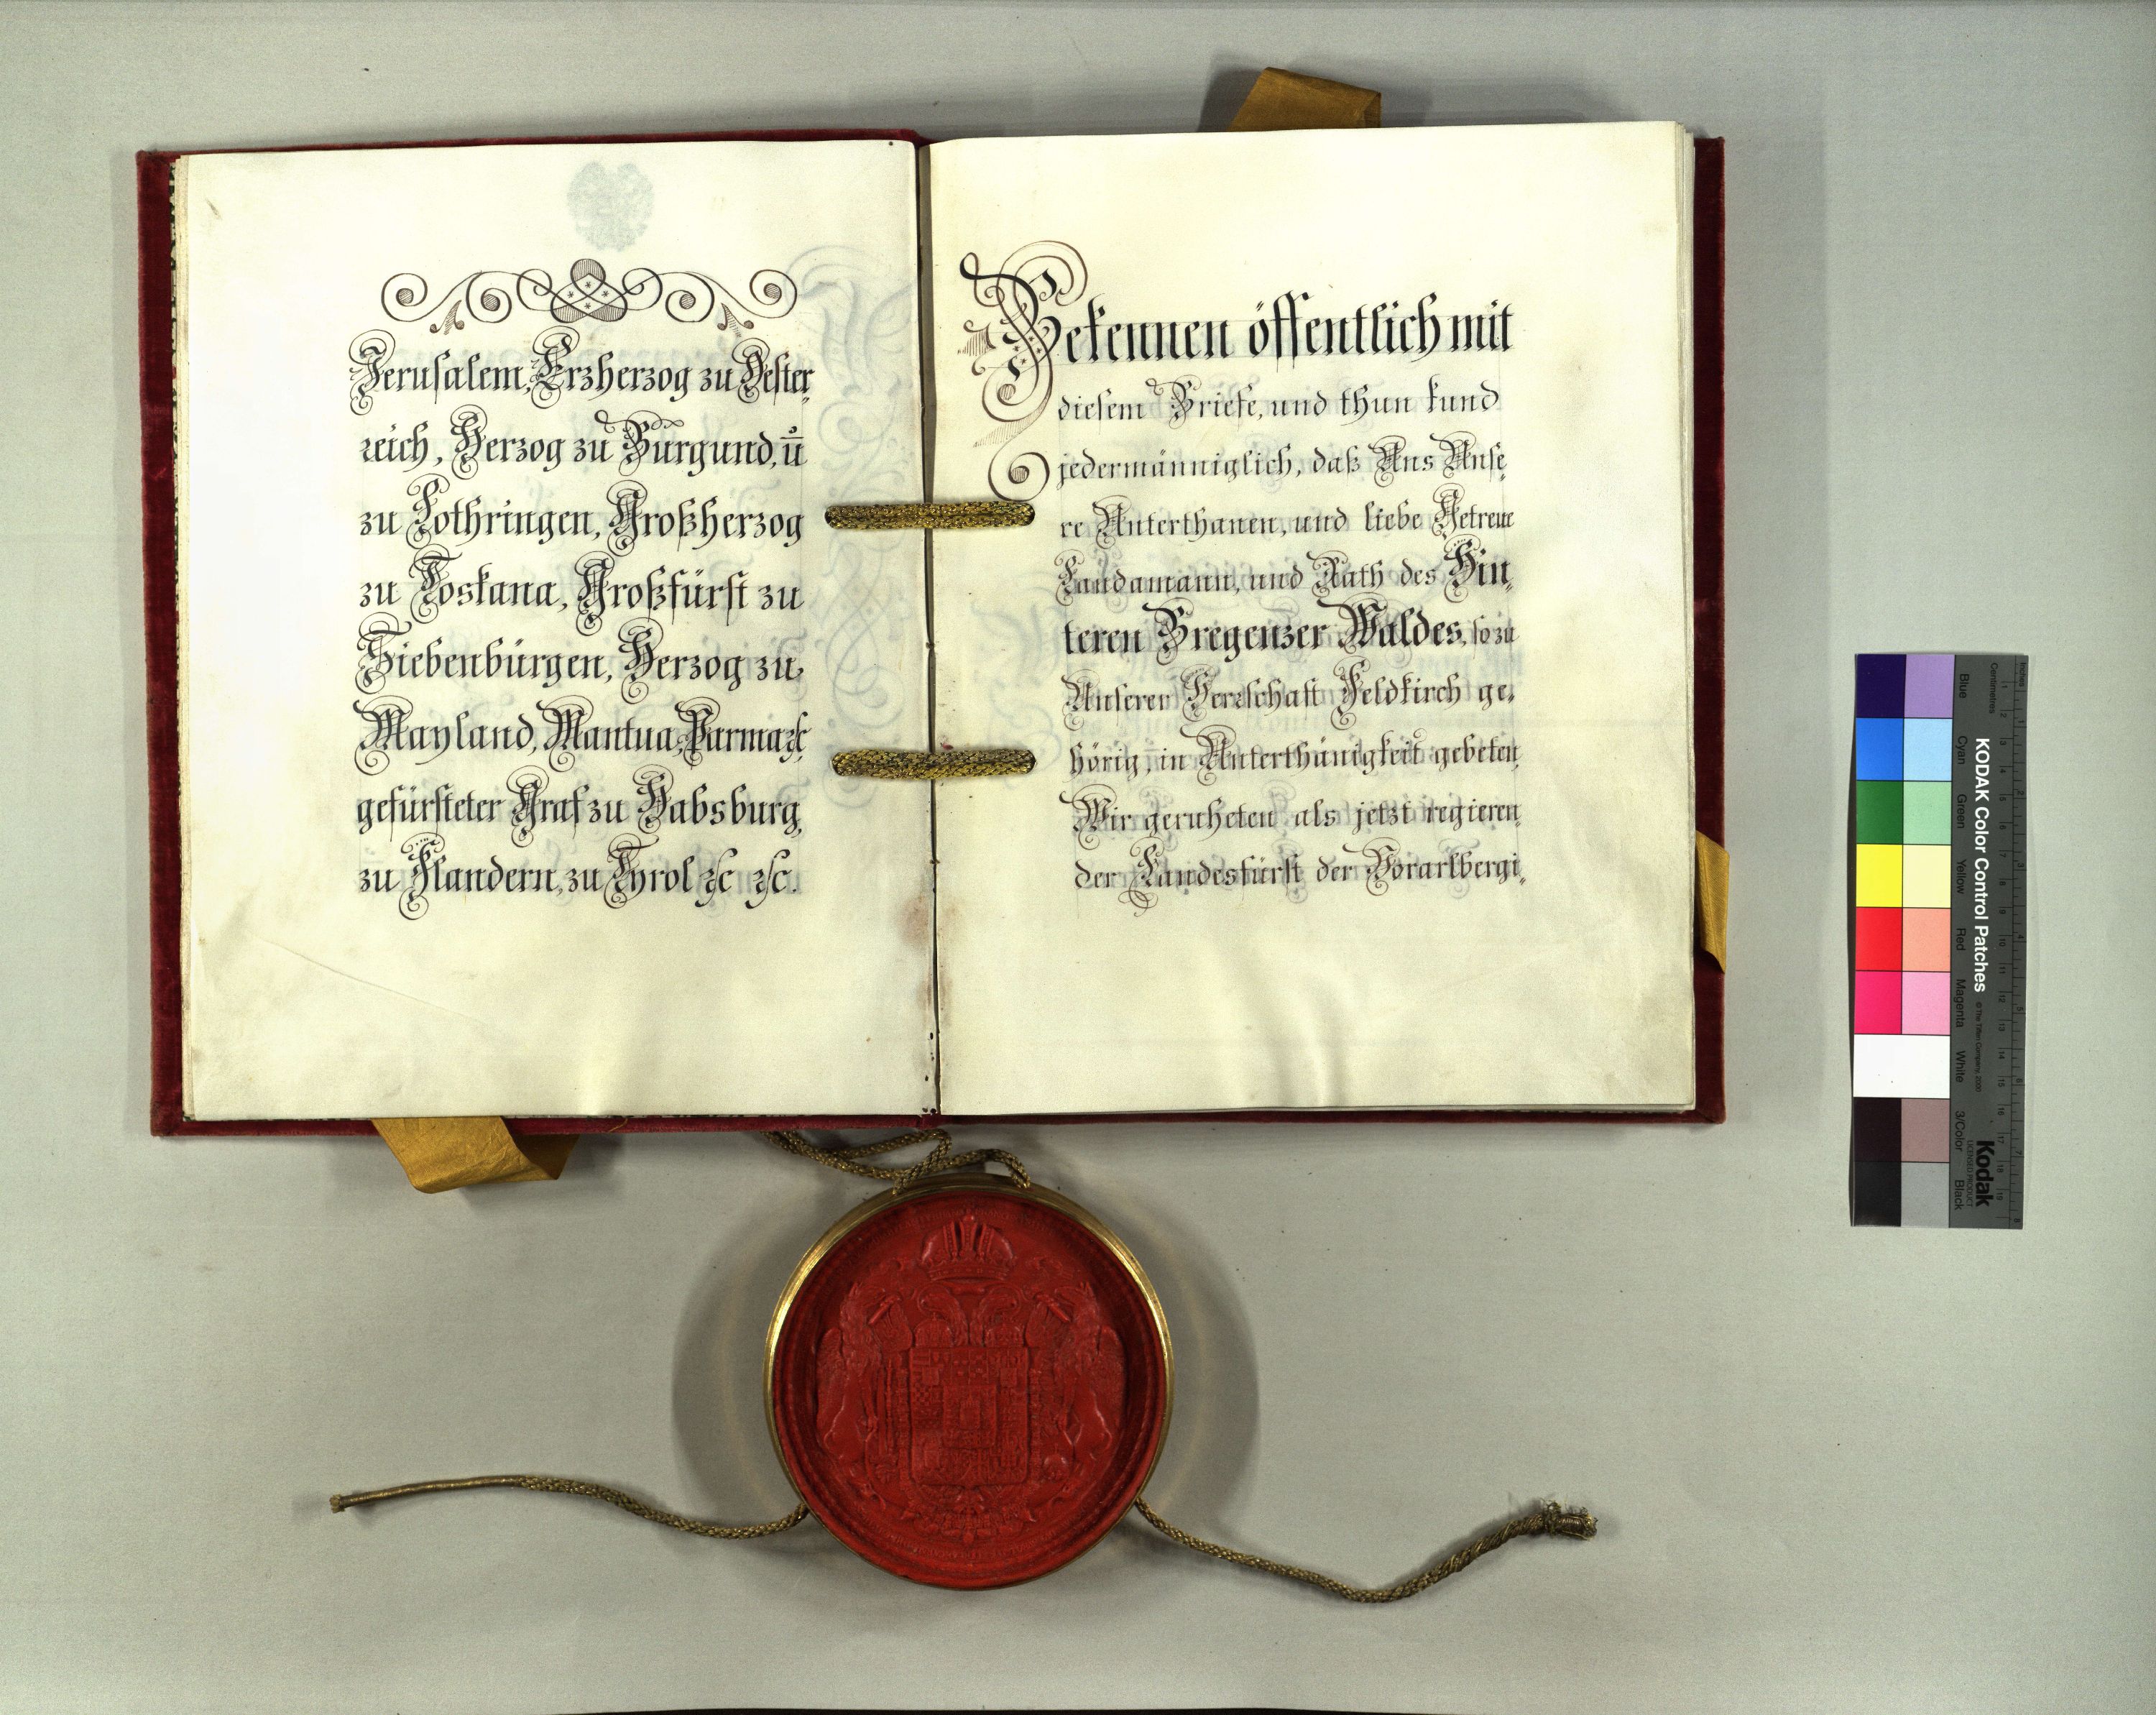 Jerusalem, Erzherzog zu Oester,
reich, Herzog zu Burgund, ū
zu Lothringen, Großherzog
zu Toskana, Großfürst zu
Siebenbürgen, Herzog zu
Mayland, Mantua, Parma ꝛc
gefürsteter Graf zu Habsburg,
zu Flandern, zu Tyrol ꝛc ꝛc.
Bekennen öffentlich mit
diesem Briefe, und thun kund
jedermänniglich, daß Uns Unse,
re Unterthanen, und liebe Getreue
Landamann, und Rath des Hin,
teren Bregenzer Waldes, so zu
Unserer Herrschaft Feldkirch ge,
hörig, in Unterthänigkeit gebeten,
Wir geruheten als jetzt regieren,
der Landesfürst der Vorarlbergi,
Inches
Centimetres
KODAK Color Control Patches
© The Tiffen Company, 2000
Kodak
LICENSED PRODUCT
Blue
Cyan
Green
Yellow
Red
Magenta
White
3/Color
Black